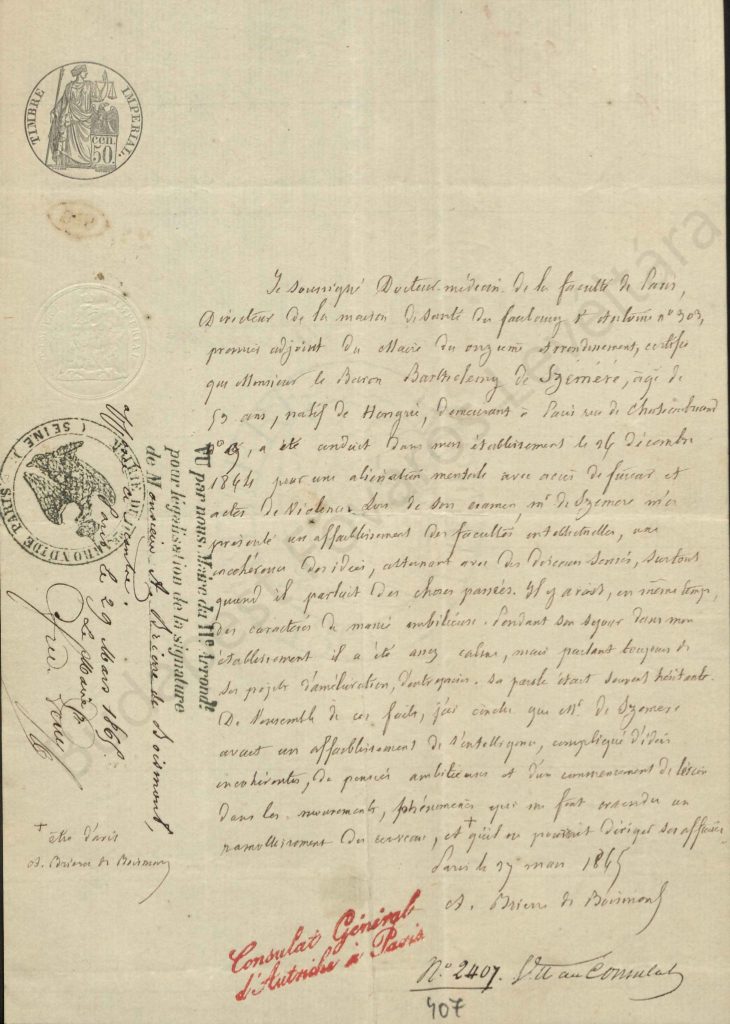 TIMBRE IMPERIAL
CEN.
50.
Je soussigné Docteur-médecin de la faculté de Paris,
Directeur de la maison de santé du faubourg St Antoine n° 303,
premier adjoint du Maire du onzième arrondissement, certifie
que Monsieur le Baron Barthelemy de Szemere, âgé de
53 ans, natif de Hongrie, demeurant à Paris rue de Chateaubriand
n° , a été conduit dans mon établissement le 26 décembre
1864 pour une aliénation mentale avec accès de fureur et
actes de violence. Lors de son examen, Mr de Szemere m'a
présenté un affaiblissement des facultés intellectuelles, une
incohérence des idées, alternant avec des discours sensés, surtout
quand il parlait des choses passées. Il y avait, en même temps,
des caractères de manie ambitieuse. Pendant son séjour dans mon
établissement il a été assez calme, mais parlant toujours de
ses projets d'amélioration, d'entreprises. Sa parole était souvent hésitante.
De l'ensemble de ces faits, j'ai conclu que Mr. de Szemere
avait un affaiblissement de l'intelligence, compliqué d'idées
incohérentes, de pensées ambitieuses et d'un commencement de lésion
dans les mouvements, phénomènes qui me font craindre un
ramollissement du cerveau, et + qu'il ne pouvait diriger ses affaires
Paris le 27 mars 1865
A. Brierre de Boismont
+ être d'avis
A. Brierre de Boismont
VU par nous, Maire du 11e Arrondt
pour légalisation de la signature
de Monsieur A. Brierre de Boismont,
apposée ci-contre.
Paris, le 29 Mars 1865
Le Maire
MAIRIE DU ARRONDT DE PARIS (SEINE)
Consulat Général
d'Autriche à Paris
N° 2407. Vu au Consulat
407